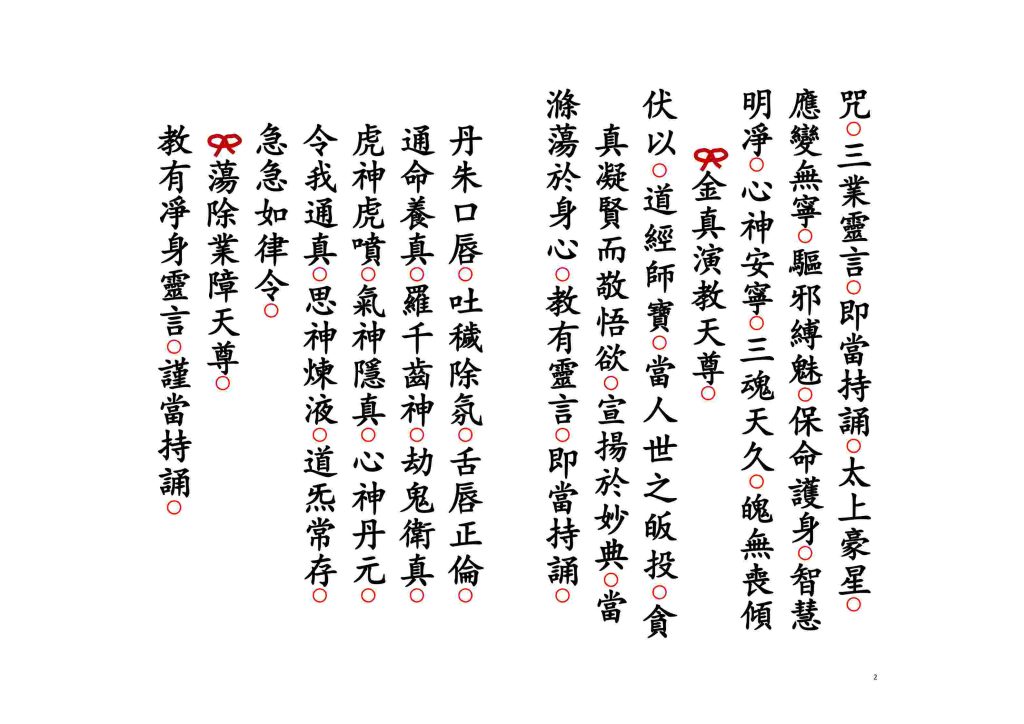 咒○三業靈言○即當持誦○太上豪星○
應變無寧○驅邪縛魅○保命護身○智慧
明淨○心神安寧○三魂天久○魄無喪傾
金真演教天尊○
伏以○道經師寶○當人世之皈投○貪
真凝賢而敬悟欲○宣揚於妙典○當
滌蕩於身心○教有靈言○即當持誦○
丹朱口唇○吐穢除氛○舌唇正倫○
通命養真○羅千齒神○劫鬼衛真○
虎神虎噴○氣神隱真○心神丹元○
令我通真○思神煉液○道炁常存○
急急如律令○
蕩除業障天尊○
教有淨身靈言○謹當持誦○
2